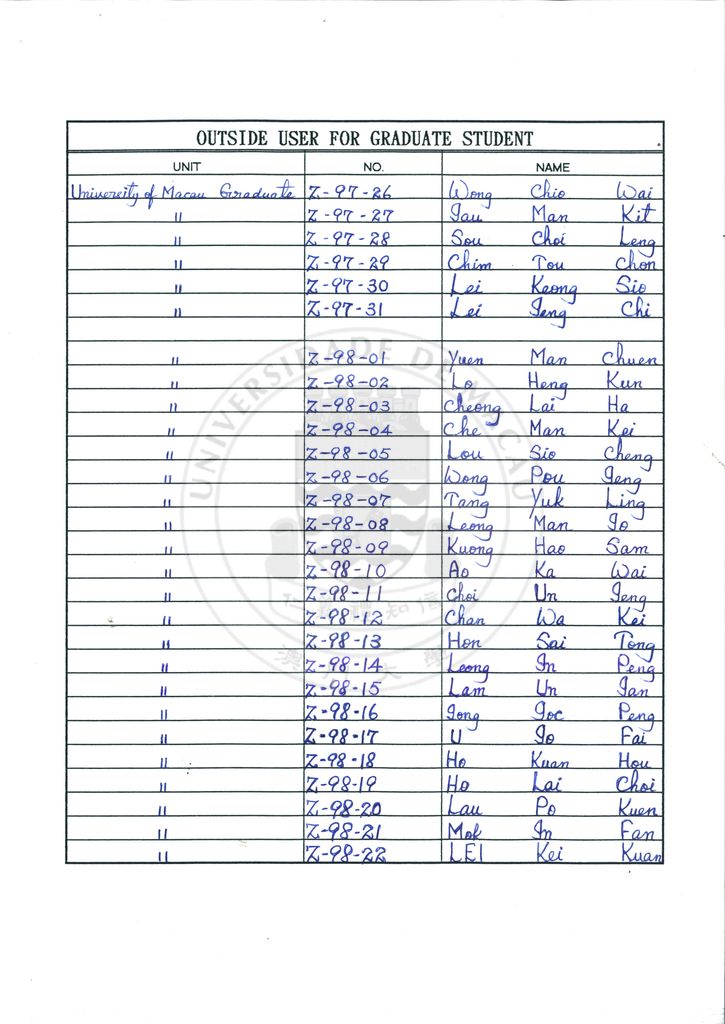 OUTSIDE USER FOR GRADUATE STUDENT
UNIT NO. NAME
University of Macau Graduate Z-97-26 Wong Chio Wai
" Z-97-27 Iau Man Kit
" Z-97-28 Sou Choi Leng
" Z-97-29 Chim Tou chon
" Z-97-30 Lei Keong Sio
" Z-97-31 Lei Ieng Chi
" Z-98-01 Yuen Man Chuen
" Z-98-02 Lo Heng Kun
" Z-98-03 Cheong Lai Ha
" Z-98-04 Che Man Kei
" Z-98-05 Lou Sio Cheng
" Z-98-06 Wong Pou Ieng
" Z-98-07 Tang Yuk Ling
" Z-98-08 Leong Man Io
" Z-98-09 Kuong Hao Sam
" Z-98-10 Ao Ka Wai
" Z-98-11 Choi Un Ieng
" Z-98-12 Chan Wa Kei
" Z-98-13 Hon Sai Tong
" Z-98-14 Leong In Peng
" Z-98-15 Lam Un Ian
" Z-98-16 Iong Ioc Peng
" Z-98-17 U Io Fai
" Z-98-18 Ho Kuan Hou
" Z-98-19 Ho Lai Choi
" Z-98-20 Lau Po Kuen
" Z-98-21 Mok In Fan
" Z-98-22 LEI Kei Kuan
UNIVERSIDADE DE MACAU